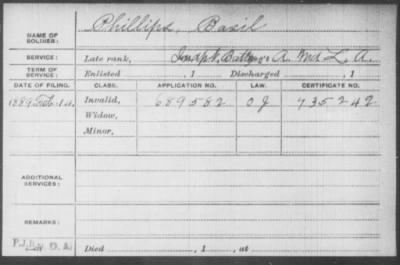 NAME OF SOLDIER: Phillips, Basil
SERVICE: Late rank, A. Md. L. A.
TERM OF SERVICE: Enlisted , 1 , Discharged , 1
DATE OF FILING. CLASS. APPLICATION NO. LAW. CERTIFICATE NO.
1889 Feb. 14. Invalid, 689582 O J 735242
Widow,
Minor,
ADDITIONAL SERVICES:
REMARKS:
Died , 1 , at